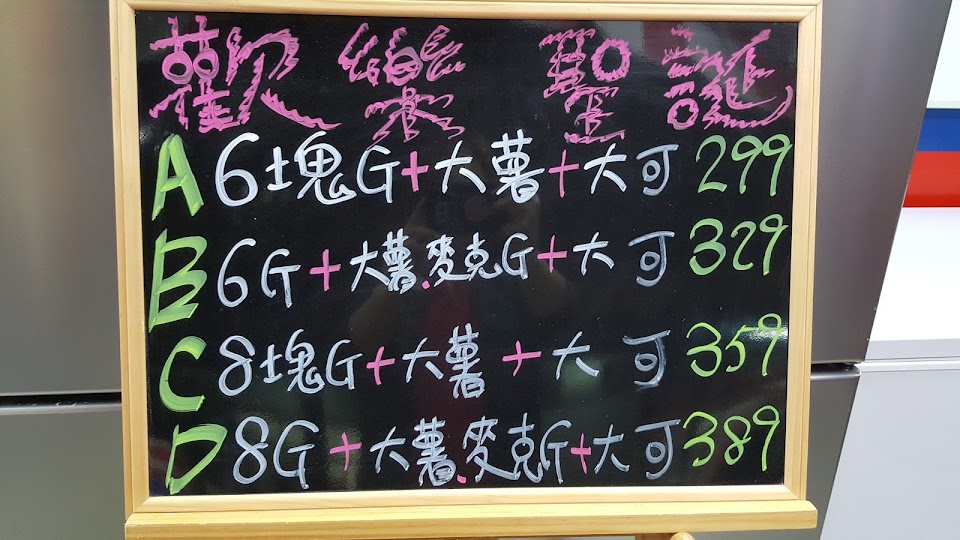 歡樂聖誕
A 6塊G+大薯+大可 299
B 6G+大薯.麥克G+大可 329
C 8塊G+大薯+大可 359
D 8G+大薯.麥克G+大可 389